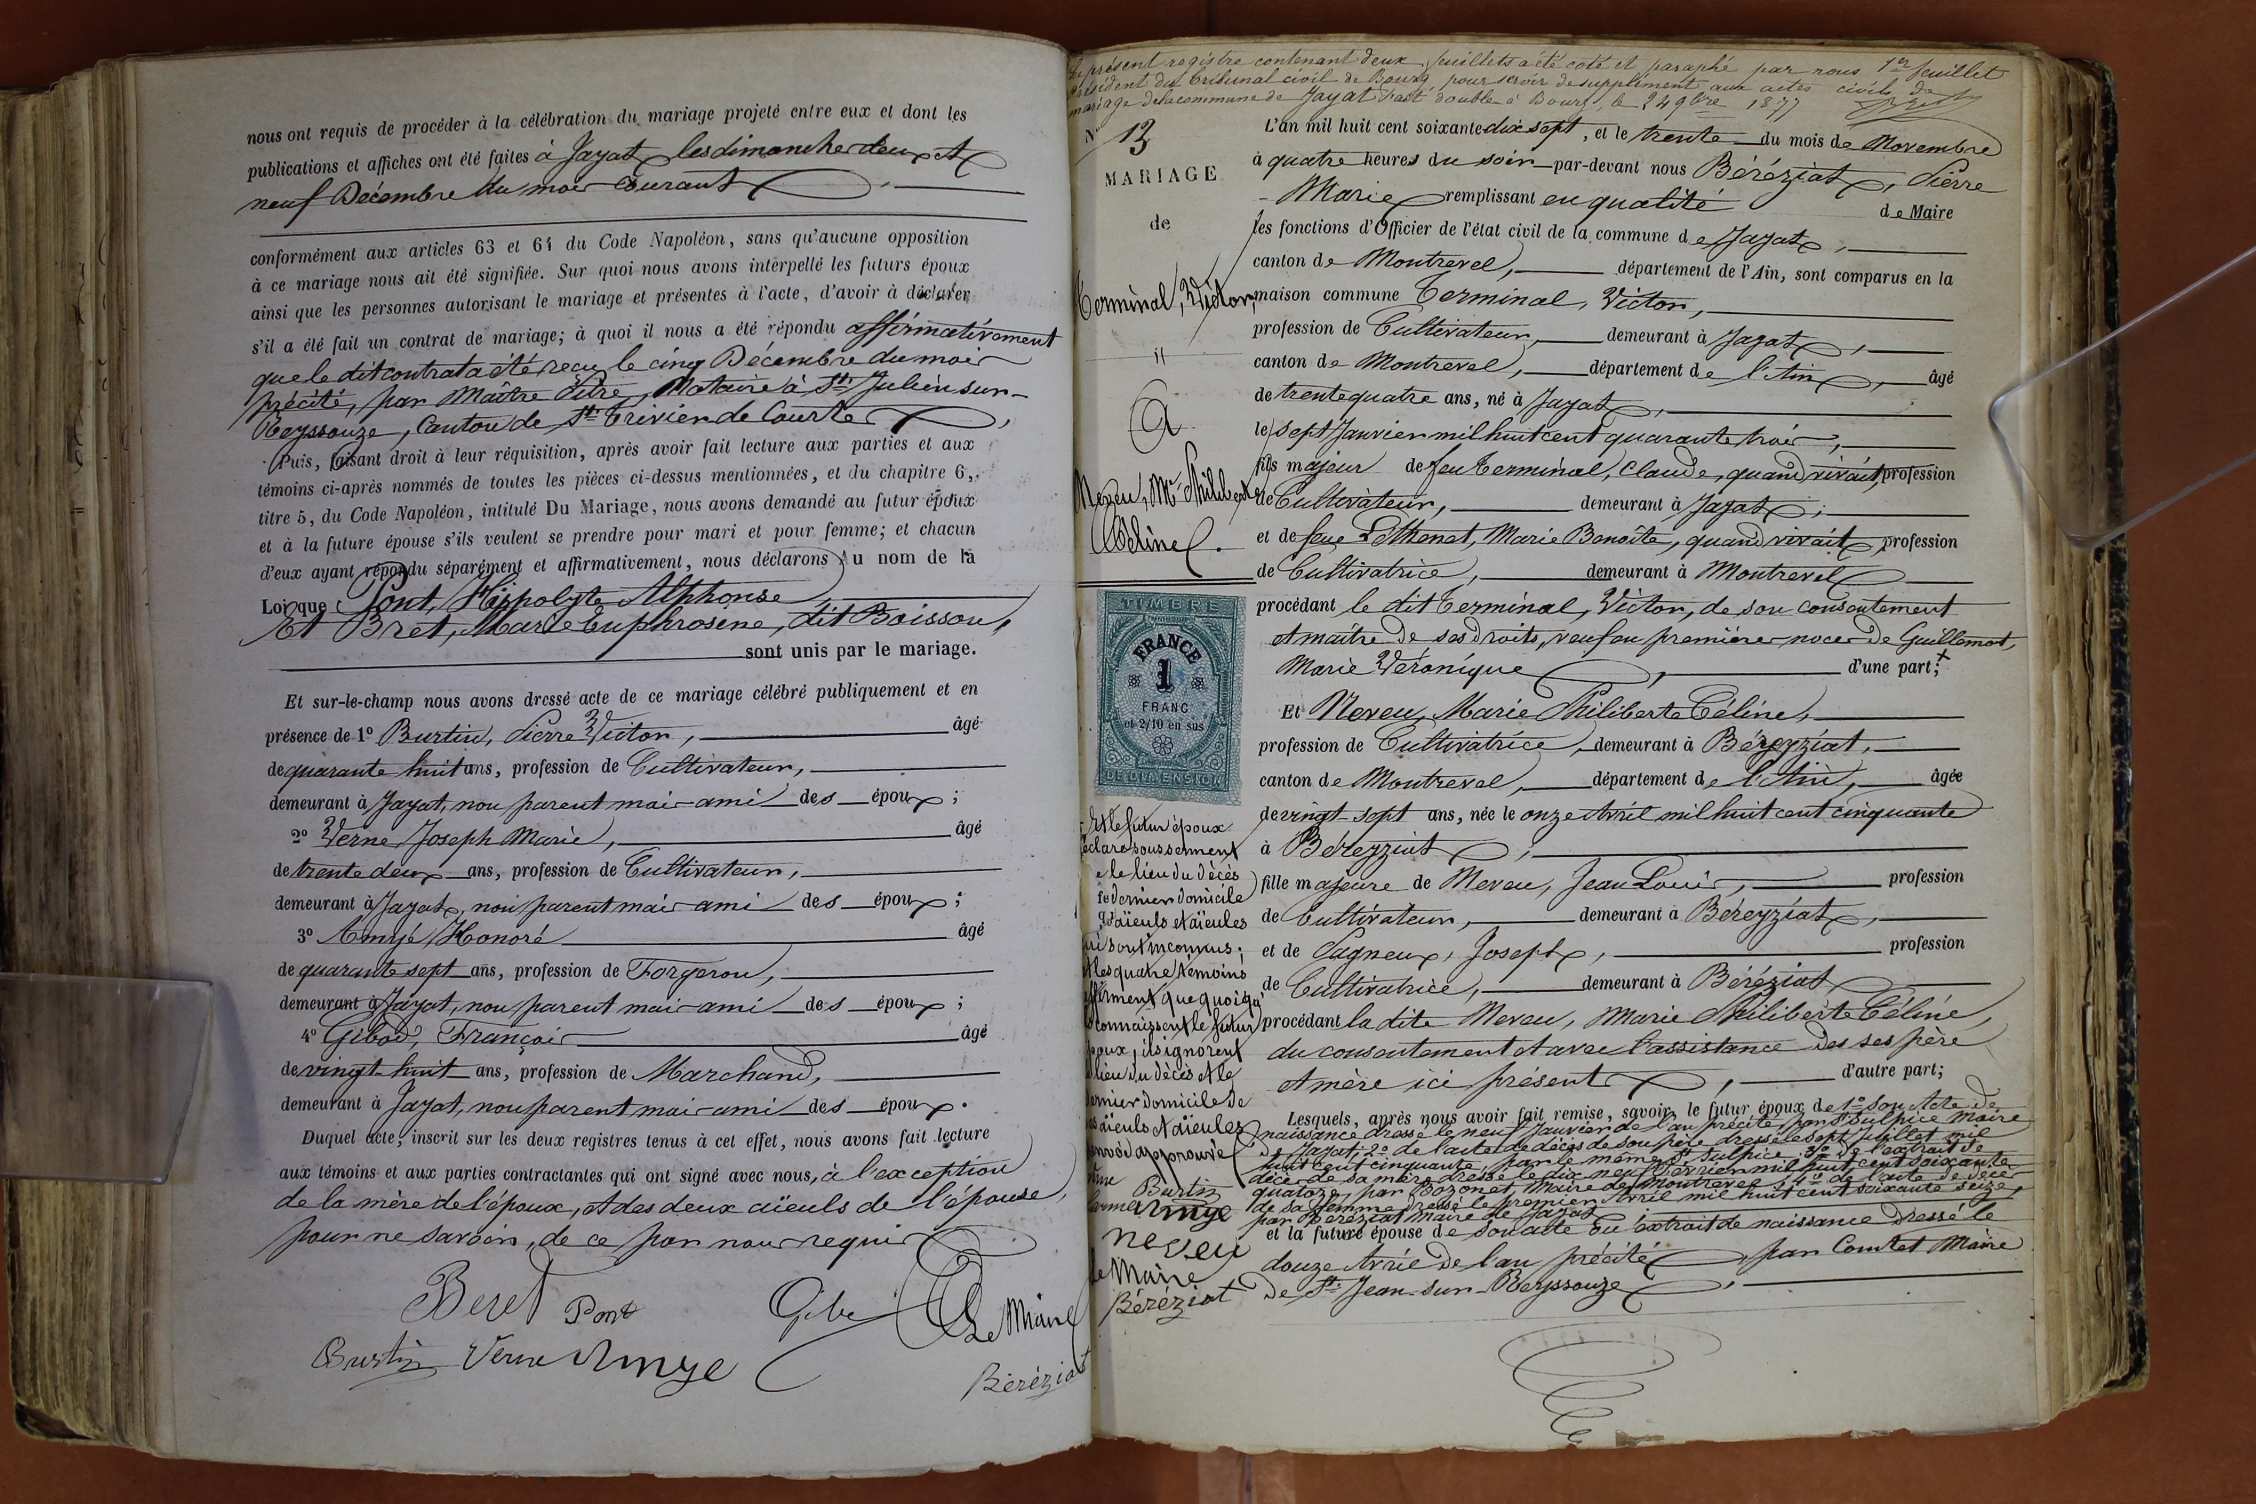 nous ont requis de procéder à la célébration du mariage projeté entre eux et dont les
publications et affiches ont été faites à Jayat, les dimanches deux et
neuf Décembre du mois courant
conformément aux articles 63 et 64 du Code Napoléon, sans qu'aucune opposition
à ce mariage nous ait été signifiée. Sur quoi nous avons interpellé les futurs époux
ainsi que les personnes autorisant le mariage et présentes à l'acte, d'avoir à déclarer
s'il a été fait un contrat de mariage; à quoi il nous a été répondu affirmativement
que le dit contrat a été reçu le cinq Décembre du mois
précité, par Maître Vitre, Notaire à St Julien sur-
Reyssouze, Canton de St Trivier de Courte
Puis, faisant droit à leur réquisition, après avoir fait lecture aux parties et aux
témoins ci-après nommés de toutes les pièces ci-dessus mentionnées, et du chapitre 6,
titre 5, du Code Napoléon, intitulé Du Mariage, nous avons demandé au futur époux
et à la future épouse s'ils veulent se prendre pour mari et pour femme; et chacun
d'eux ayant répondu séparément et affirmativement, nous déclarons Au nom de la
Loi que Pont, Hippolyte Alphonse
Et Bret, Marie Euphrosine, dit Boisson,
sont unis par le mariage.
Et sur-le-champ nous avons dressé acte de ce mariage célébré publiquement et en
présence de 1º Burtin, Pierre Victor, âgé
de quarante huit ans, profession de Cultivateur,
demeurant à Jayat, non parent mais ami des époux;
2º Verne Joseph Marie, âgé
de trente deux ans, profession de Cultivateur,
demeurant à Jayat, non parent mais ami des époux;
3º Amyé Honoré âgé
de quarante sept ans, profession de Forgeron,
demeurant à Jayat, non parent mais ami des époux;
4º Gibod, François âgé
de vingt huit ans, profession de Marchand,
demeurant à Jayat, non parent mais ami des époux.
Duquel acte, inscrit sur les deux registres tenus à cet effet, nous avons fait lecture
aux témoins et aux parties contractantes qui ont signé avec nous, à l'exception
de la mère de l'époux, et des deux aïeuls de l'épouse,
pour ne savoir, de ce par nous requis
Beret Pont Gibo Le Maire
Burtin Verne Amye
Béréziat
Le présent registre contenant deux feuillets a été coté et paraphé par nous 1er feuillet
Président du Tribunal civil de Bourg pour servir de supplément aux actes civils de
mariage de la commune de Jayat Fait double à Bourg, le 24 9bre 1877
No 13
MARIAGE
de
Terminal, Victor,
Et
Neveu, Me Philiberte
Céline
TIMBRE
FRANCE
1
FRANC
et 2/10 en sus
DE DIMENSION
Et le futur époux
déclare sous serment
que le lieu du décès
le dernier domicile
d'aïeuls et aïeules
lui sont inconnus;
et les quatre témoins
affirment que quoiqu'
connaissent le futur
époux, ils ignorent
le lieu du décès et le
dernier domicile de
ses aïeuls et aïeules
renvoi approuvé
Burtin
Amye
neveu
Le Maire
Béréziat
L'an mil huit cent soixante-dix sept, et le trente du mois de Novembre
à quatre heures du soir par-devant nous Béréziat, Pierre
Marie remplissant en qualité de Maire
les fonctions d'Officier de l'état civil de la commune de Jayat,
canton de Montrevel, département de l'Ain, sont comparus en la
maison commune Terminal, Victor,
profession de Cultivateur, demeurant à Jayat,
canton de Montrevel, département de l'Ain, âgé
de trente quatre ans, né à Jayat,
le sept Janvier mil huit cent quarante trois,
fils majeur de feu Terminal, Claude, quand vivait, profession
de Cultivateur, demeurant à Jayat;
et de feue Pethenet, Marie Benoîte, quand vivait, profession
de Cultivatrice, demeurant à Montrevel
procédant le dit Terminal, Victor, de son consentement
et maître de ses droits, veuf en premières noces de Guillemot,
Marie Véronique d'une part; +
Et Neveu, Marie Philiberte Céline,
profession de Cultivatrice, demeurant à Béreyziat,
canton de Montrevel, département de l'Ain, âgée
de vingt-sept ans, née le onze Avril mil huit cent cinquante
à Béreyziat,
fille majeure de Neveu, Jean Louis, profession
de Cultivateur, demeurant à Béreyziat,
et de Pagneux, Joseph, profession
de Cultivatrice, demeurant à Béréziat
procédant la dite Neveu, Marie Philiberte Céline,
du consentement et avec l'assistance des ses père
et mère ici présent, d'autre part;
Lesquels, après nous avoir fait remise, savoir, le futur époux de 1º Son Acte de
naissance dressé le neuf Janvier de l'an précité, par St Sulpice Maire
de Jayat, 2º de l'acte de décès de son père dressé le sept Juillet mil
huit cent cinquante, par le même St Sulpice. 3º De l'extrait de
décès de sa mère dressé le dix neuf Février mil huit cent soixante
quatorze, par Bozonet, Maire de Montrevel; 4º de l'acte de décès
de sa femme dressé le premier Avril mil huit cent soixante seize,
par Béréziat Maire de Jayat
et la future épouse de son acte ou extrait de naissance dressé le
douze Avril de l'an précité, par Comtet Maire
de St Jean-sur-Reyssouze